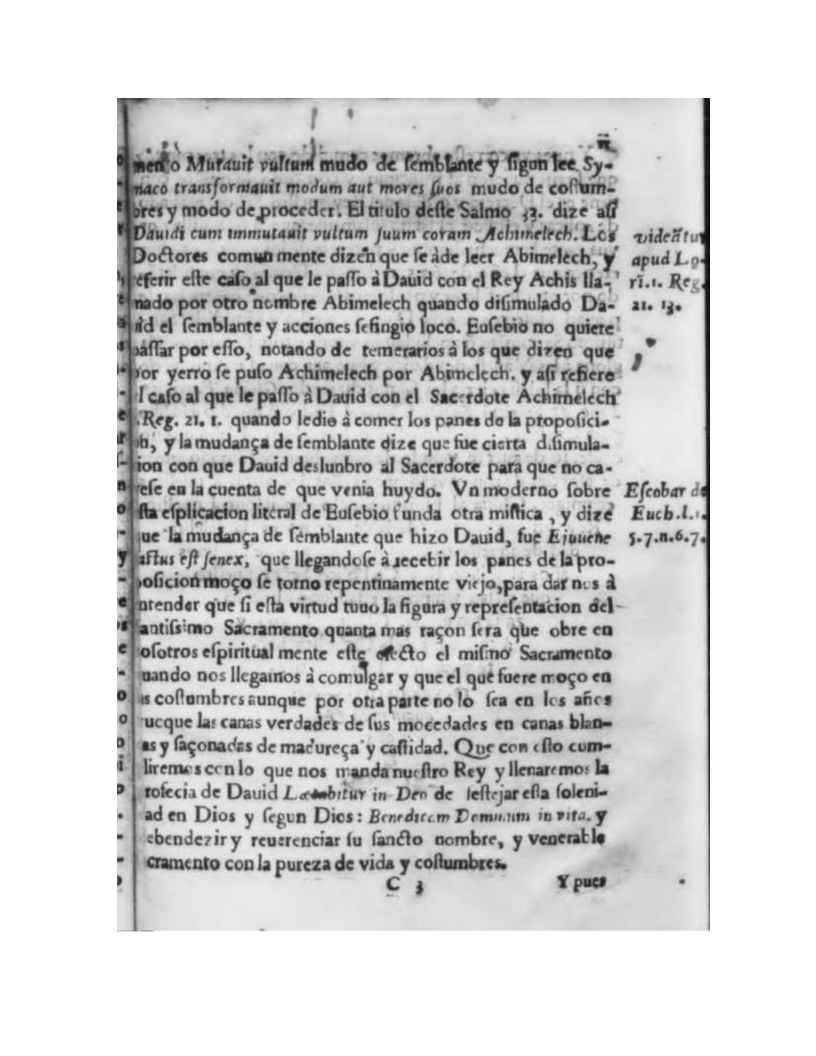 mento Mutauit vultum mudo de semblante y sigun lee Sy-
riaco transformauit modum aut mores suos mudo de costum-
bres y modo de proceder. El titulo deste Salmo 33. dize asi
Dauidi cum immutauit vultum suum coram Achimelech. Los
Doctores comun mente dizen que se àde leer Abimelech, y
referir este caso al que le passo à Dauid con el Rey Achis lla-
mado por otro nombre Abimelech quando disimulado Da-
uid el semblante y acciones sefingio loco. Eusebio no quiere
passar por esso, notando de temerarios à los que dizen que
por yerro se puso Achimelech por Abimelech. y asi refiere
el caso al que le passo à Dauid con el Sacerdote Achimelech
1. Reg. 21. 1. quando ledio à comer los panes de la proposici-
on, y la mudança de semblante dize que fue cierta disimula-
cion con que Dauid deslunbro al Sacerdote para que no ca-
yese en la cuenta de que venia huydo. Vn moderno sobre
esta esplicacion literal de Eusebio funda otra mistica, y dize
que la mudança de semblante que hizo Dauid, fue E juuene
factus est senex, que llegandose à recebir los panes de la pro-
posicion moço se torno repentinamente viejo, para dar nos à
entender que si esta virtud tuuo la figura y representacion del
santissimo Sacramento quanta mas raçon sera que obre en
nosotros espiritual mente este efecto el mismo Sacramento
quando nos llegamos à comulgar y que el que fuere moço en
las costumbres aunque por otra parte no lo sea en los años
trueque las canas verdades de sus mocedades en canas blan-
cas y saçonadas de madureça y castidad. Que con esto cum-
pliremos con lo que nos manda nuestro Rey y llenaremos la
profecia de Dauid Lætabitur in Deo de festejar esta soleni-
dad en Dios y segun Dios: Benedicam Dominum in vita. y
bendezir y reuerenciar su sancto nombre, y venerable
Sacramento con la pureza de vida y costumbres.
C 3 Y pues
videñtur
apud Lo-
rī. 1. Reg.
21. 13.
Escobar de
Euch. l. 1.
5. 7. n. 6. 7.